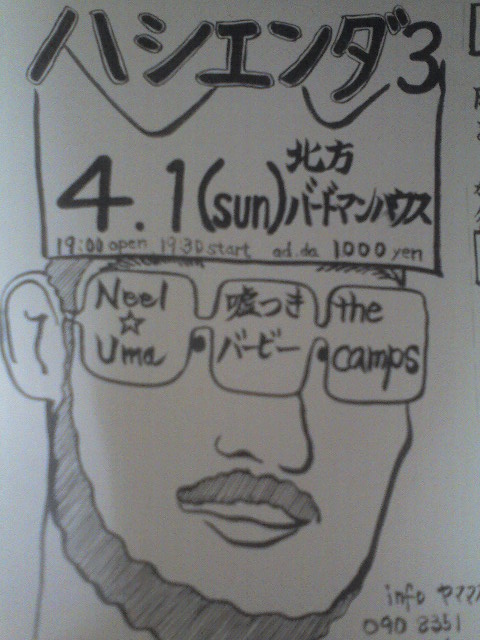 ハシエンダ3
4.1(sun)
北方
バードマンハウス
19:00 open 19:30 start ad.da 1000 yen
Neel
☆
Uma
嘘つき
バービー
the
camps
info ヤママ
090 8351